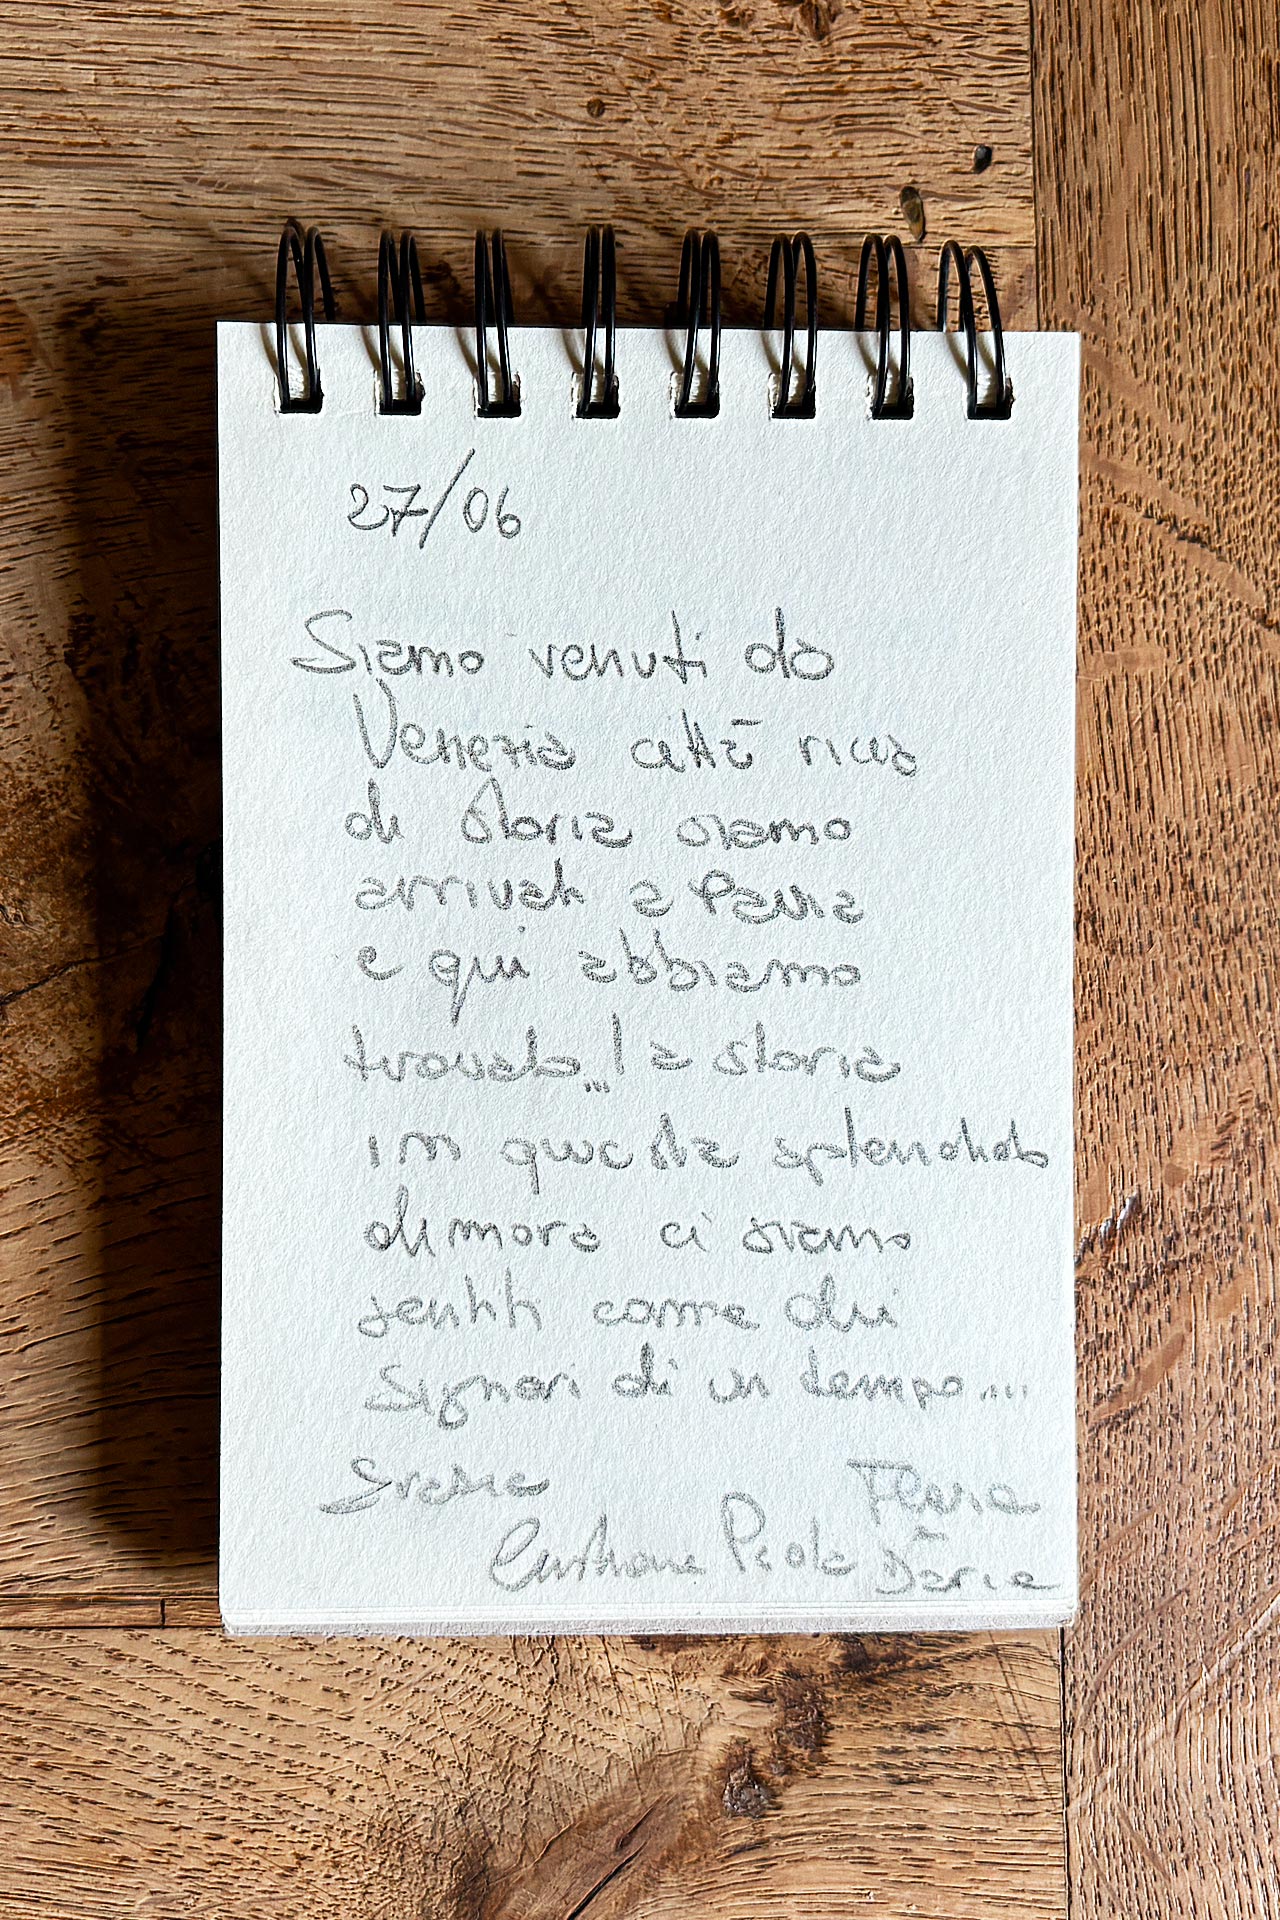 27/06
Siamo venuti da
Venezia città ricca
di storia siamo
arrivati a Pavia
e qui abbiamo
trovato...la storia
in questa splendida
dimora ci siamo
sentiti come dei
Signori di un tempo....
Flavia
Paola
Daria